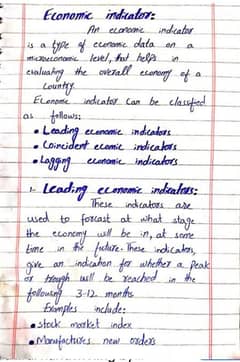 Economic indicators:
An economic indicator
is a type of economic data on a
microeconomic level, that helps in
evaluating the overall economy of a
country.
Economic indicator can be classified
as follows:
• Leading economic indicators
• Coincident ecomic indicators
• Lagging economic indicators
1- Leading economic indicators:
These indicators are
used to forcast at what stage
the economy will be in, at some
time in the future. These indicators,
give an indication for whether a peak
or trough will be reached in the
following 3-12 months
Examples include:
• Stock market index
• Manufactures new orders